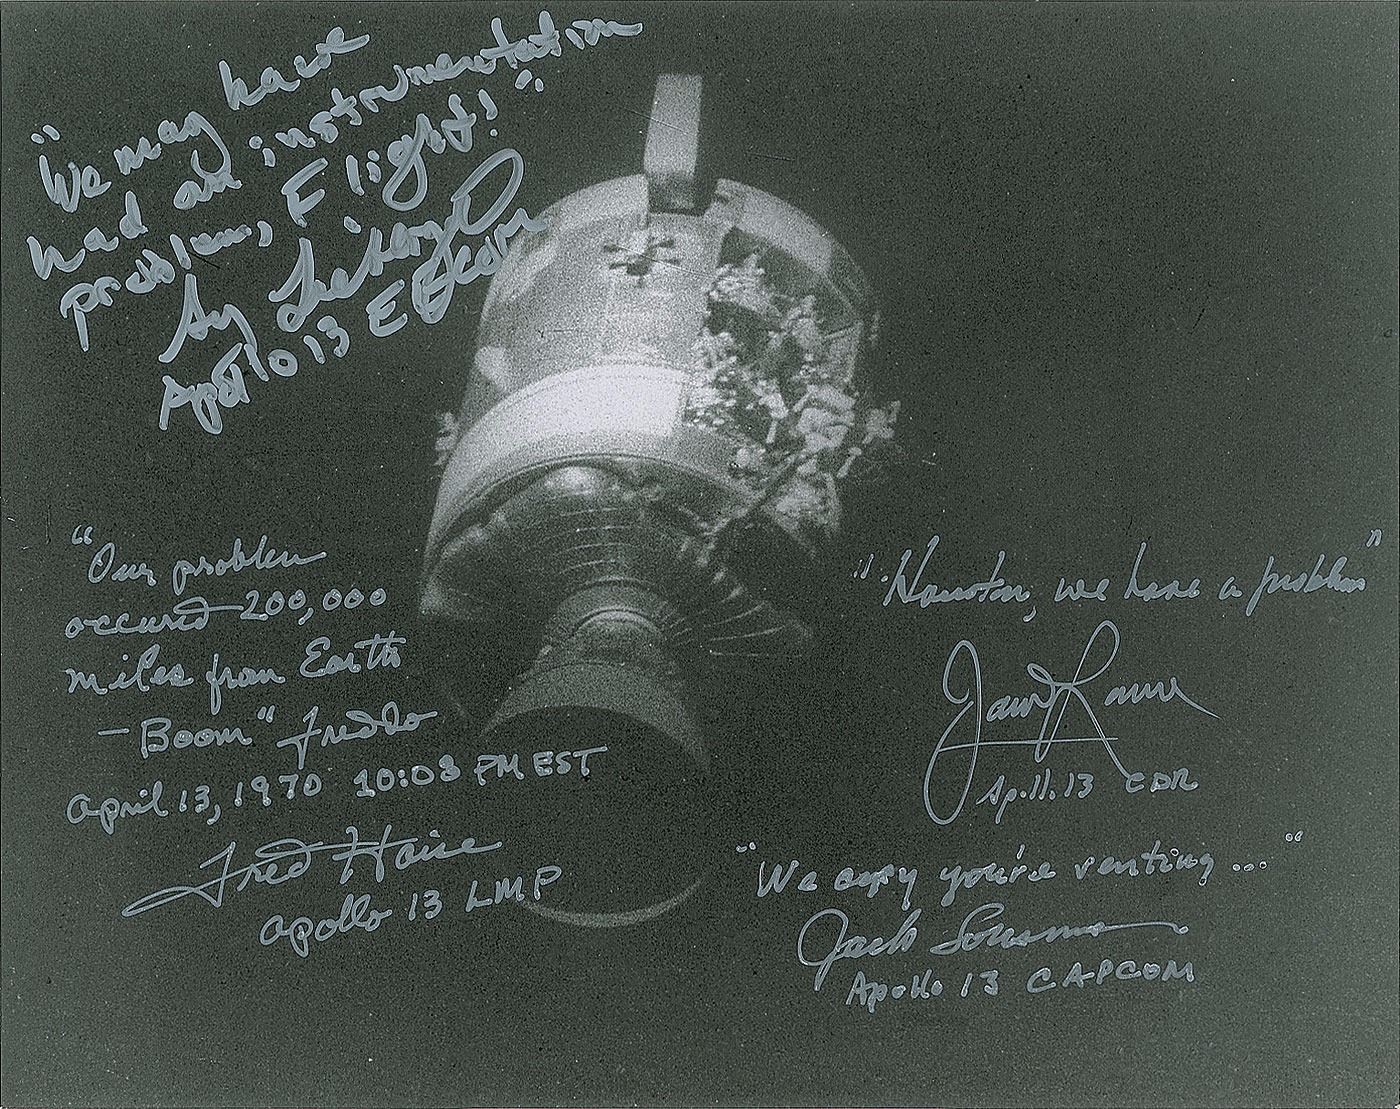 "We may have
had an instrumentation
problem, Flight!"
Sy Liebergot
Apollo 13 EECOM
"Our problem
occured 200,000
miles from Earth
— Boom" Freddo
April 13, 1970 10:03 PM EST
Fred Haise
Apollo 13 LMP
"Houston, we have a problem"
James Lovell
Apollo 13 CDR
"We copy you're venting..."
Jack Lousma
Apollo 13 CAPCOM